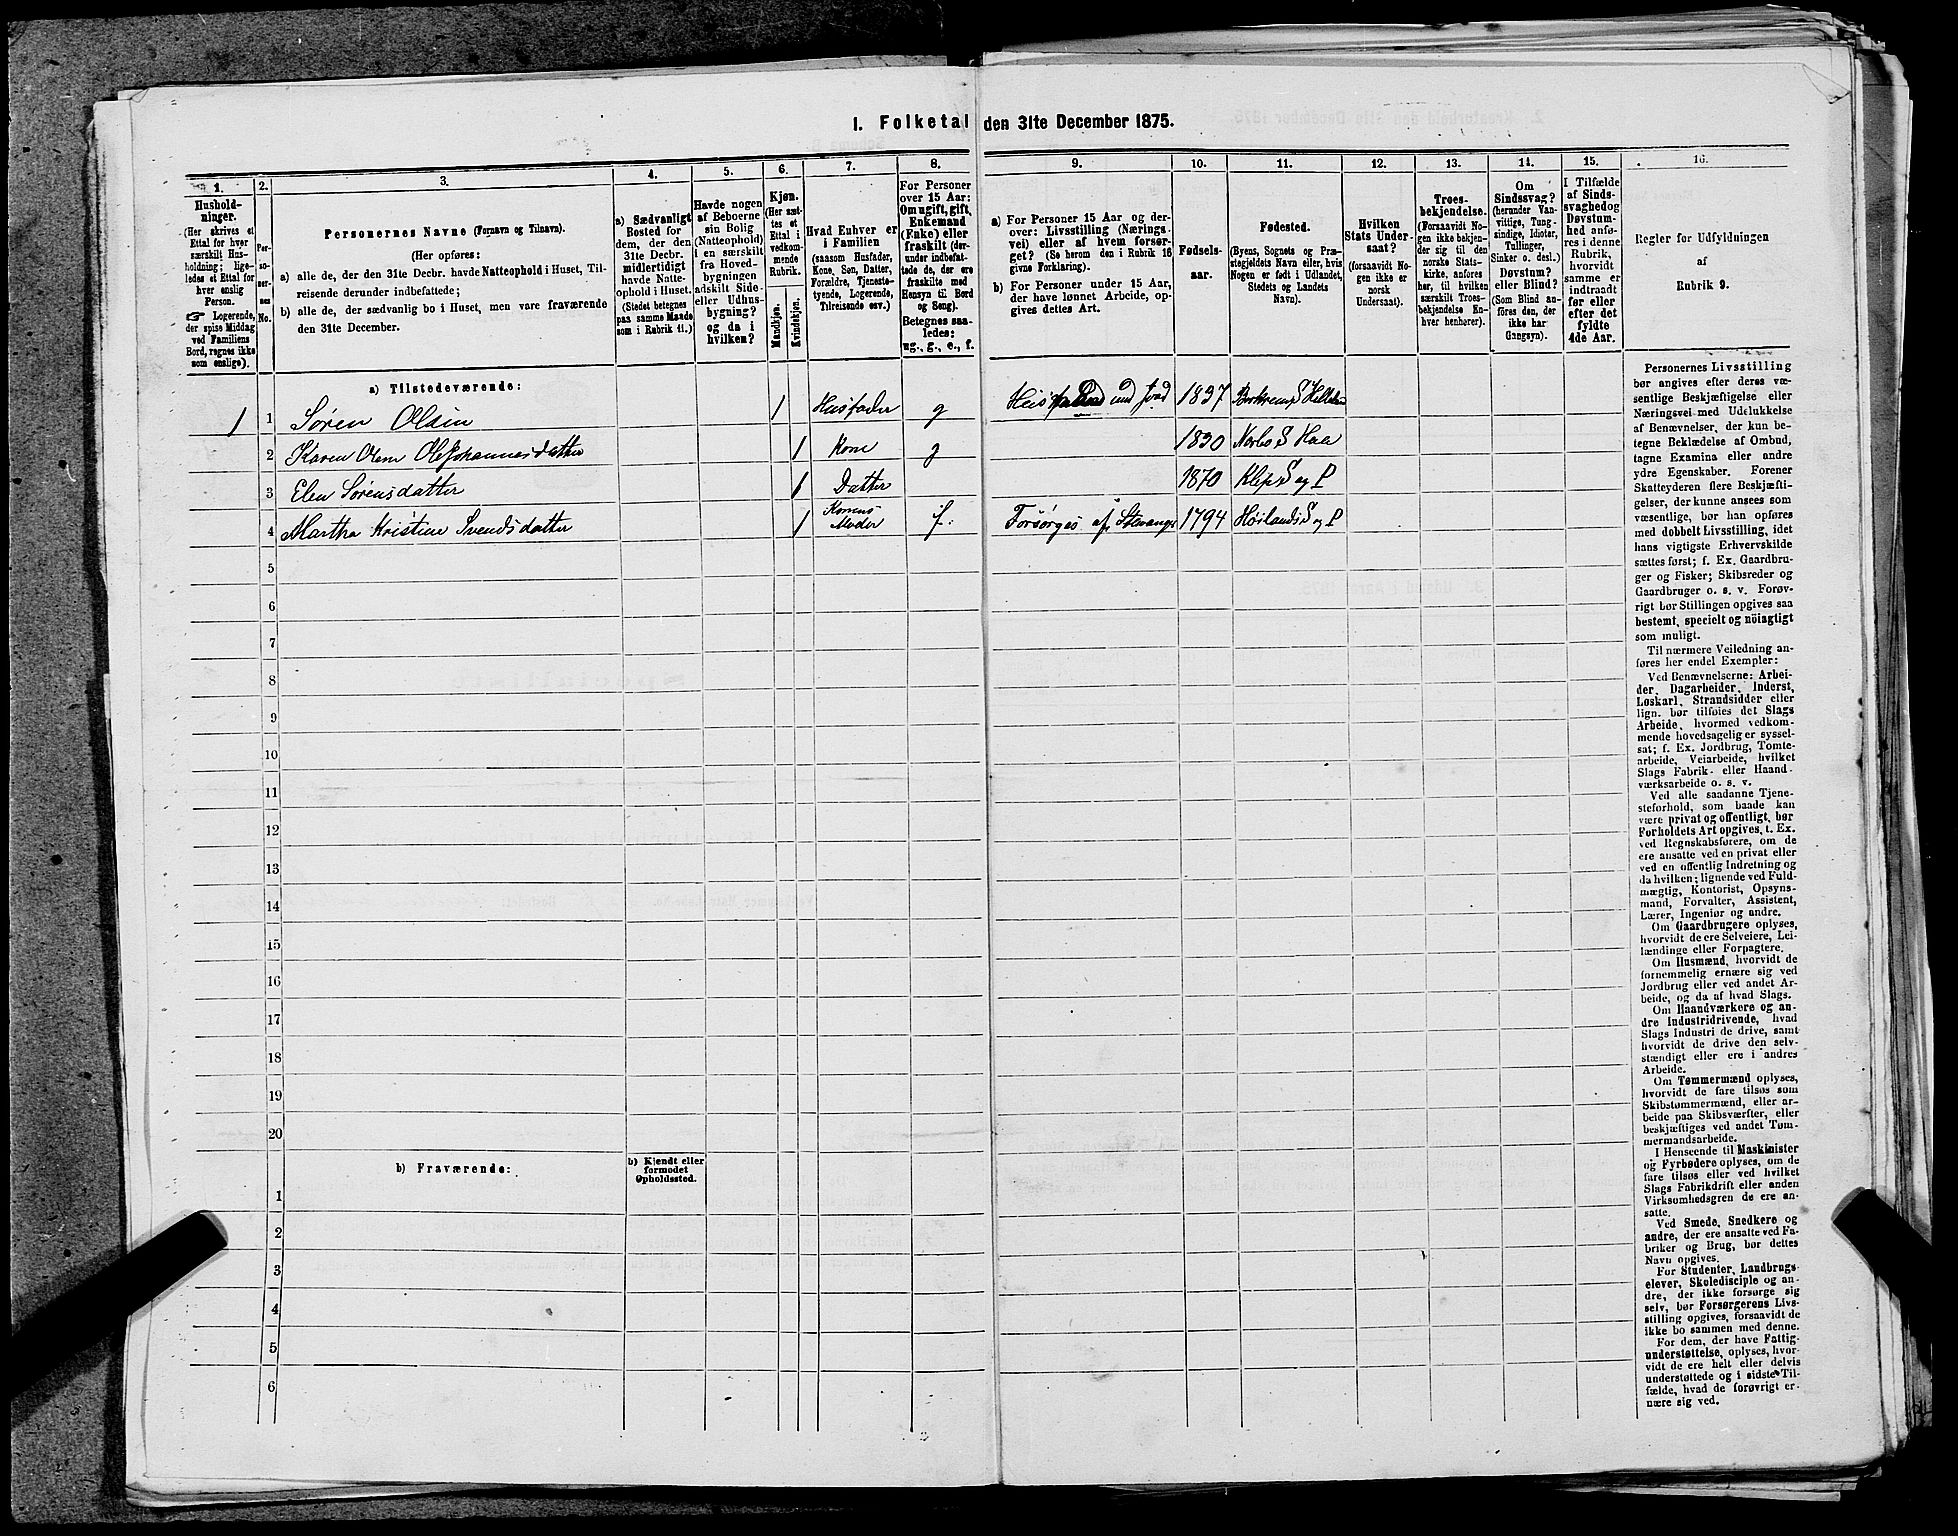 1. Folketal den 31te December 1875.
1.
Hushold-
ninger.
(Her skrives et
Ettal for hver
særskilt Hus-
holdning; lige-
ledes et Ettal for
hver enslig
Person.
☞ Logerende,
der spise Middag
ved Familiens
Bord, regnes ikke
som enslige).
2.
Per-
so-
ner-
nes
No.
3.
Personernes Navne (Fornavn og Tilnavn).
(Her opføres:
a) alle de, der den 31te Decbr. havde Natteophold i Huset, Til-
reisende derunder indbefattede;
b) alle de, der sædvanlig bo i Huset, men vare fraværende
den 31te December.
4.
a) Sædvanligt
Bosted for
dem, der den
31te Decbr.
midlertidigt
havde Natte-
ophold i Huset.
(Stedet betegnes
paa samme Maade
som i Rubrik 11.)
5.
Havde nogen
af Beboerne
sin Bolig
(Natteophold)
i en særskilt
fra Hoved-
bygningen
adskilt Side-
eller Udhus-
bygning?
og da i
hvilken?
6.
Kjøn.
(Her sæt-
tes et
Ettal i
vedkom-
mende
Rubrik.
Mandkjøn.
Kvindekjøn.
7.
Hvad Enhver er
i Familien
(saasom Husfader,
Kone, Søn, Datter,
Forældre, Tjeneste-
tyende, Logerende,
Tilreisende osv.)
8.
For Personer
over 15 Aar:
Om ugift, gift,
Enkemand
(Enke) eller
fraskilt (der-
under indbefat-
tede de, der ere
fraskilte med
Hensyn til Bord
og Seng).
Betegnes saa-
ledes:
ug., g., e., f.
9.
a) For Personer 15 Aar og der-
over: Livsstilling (Nærings-
vei) eller af hvem forsør-
get? (Se herom den i Rubrik 16
givne Forklaring).
b) For Personer under 15 Aar,
der have lønnet Arbeide, op-
gives dettes Art.
10.
Fødsels-
aar.
11.
Fødested.
(Byens, Sognets og Præ-
stegjeldets Navn eller, hvis
Nogen er født i Udlandet,
Stedets og Landets
Navn).
12.
Hvilken
Stats Under-
saat?
(forsaavidt No-
gen ikke er
norsk
Undersaat).
13.
Troes-
bekjendelse.
(Forsaavidt No-
gen ikke bekjen-
der sig til den
norske Stats-
kirke, anføres
her, til hvilken
særskilt Troes-
bekjendelse En-
hver henhører).
14.
Om
Sindssvag?
(herunder Van-
vittige, Tung-
sindige, Idioter,
Tullinger,
Sinker o. desl.)
Døvstum?
eller Blind?
(Som Blind an-
føres den, der
ikke har
Gangsyn).
15.
I Tilfælde
af Sinds-
svaghed og
Døvstum-
hed anfø-
res i denne
Rubrik,
hvorvidt
samme er
indtraadt
før eller
efter det
fyldte
4de Aar.
16.
Regler for Udfyldningen
af
Rubrik 9.
a) Tilstedeværende:
1 1 Søren Olsen 1 Husfader g 1837
2 Karen Olene Ole Johannesdatter 1 Kone g 1830
3 Elen Sørensdatter 1 Datter 1870 Klep S og P
4 Martha Kristine Svendsdatter 1 Konens Moder f. Forsørges af Stavanger 1794 Høilands S og P
5
6
7
8
9
10
11
12
13
14
15
16
17
18
19
20
b) Fraværende:
b) Kjendt eller
formodet
Opholdssted.
1
2
3
4
5
6
Personernes Livsstilling
bør angives efter deres væ-
sentlige Beskjæftigelse eller
Næringsvei med Udelukkelse
af Benævnelser, der kun be-
tegne Beklædelse af Ombud,
tagne Examina eller andre
ydre Egenskaber. Forener
Skatteyderen flere Beskjæfti-
gelser, der kunne ansees som
væsentlige, bør han opføres
med dobbelt Livsstilling, idet
hans vigtigste Erhvervskilde
sættes først; f. Ex. Gaardbru-
ger og Fisker; Skibsreder og
Gaardbruger o. s. v. Forøv-
rigt bør Stillingen opgives saa
bestemt, specielt og nöiagtigt
som muligt.
Til nærmere Veiledning an-
føres her endel Exempler:
Ved Benævnelserne: Arbei-
der, Dagarbeider, Inderst,
Løskarl, Strandsidder eller
lign. bør tilføies det Slags
Arbeide, hvormed vedkom-
mende hovedsagelig er syssel-
sat; f. Ex. Jordbrug, Tomte-
arbeide, Veiarbeide, hvilket
Slags Fabrik- eller Haand-
værksarbeide o. s. v.
Ved alle saadanne Tjene-
steforhold, som baade kan
være privat og offentligt, bør
Forholdets Art opgives, t. Ex.
ved Regnskabsførere, om de
ere ansatte ved en privat eller
ved en offentlig Indretning og
da hvilken; lignende ved Fuld-
mægtig, Kontorist, Opsyns-
mand, Forvalter, Assistent,
Lærer, Ingeniør og andre.
Om Gaardbrugere oplyses,
hvorvidt de ere Selveiere, Lei-
lændinge eller Forpagtere.
Om Husmænd, hvorvidt de
fornemmelig ernære sig ved
Jordbrug eller ved andet Ar-
beide, og da af hvad Slags.
Om Haandværkere og an-
dre Industridrivende, hvad
Slags Industri de drive, samt
hvorvidt de drive den selv-
stændigt eller ere i andres
Arbeide.
Om Tømmermænd oplyses,
hvorvidt de fare tilsøs som
Skibstømmermænd, eller ar-
beide paa Skibsværfter, eller
beskjæftiges ved andet Tøm-
mermandsarbeide.
I Henseende til Maskinister
og Fyrbødere oplyses, om de
fare tilsøs eller ved hvilket
Slags Fabrikdrift eller anden
Virksomhedsgren de ere an-
satte.
Ved Smede, Snedkere og
andre, der ere ansatte ved Fa-
briker og Brug, bør dettes
Navn opgives.
For Studenter, Landbrugs-
elever, Skoledisciple og an-
dre, der ikke forsørge sig
selv, bør Forsørgerens Livs-
stilling opgives, forsaavidt de
ikke bo sammen med denne.
For dem, der have Fattig-
understøttelse, oplyses, hvor-
vidt de ere helt eller delvis
understøttede og i sidste Til-
fælde, hvad de forøvrigt er-
nære sig ved.